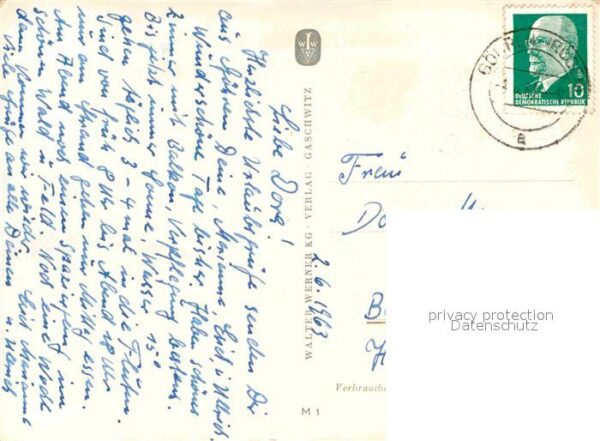 Liebe Dora!
Herzliche Urlaubsgrüße senden Dir
aus Göhren Deine Marianne, Erich u. Ulrich.
Wunderschöne Tage bisher. Haben schönes
Zimmer mit Balkon, Verpflegung bestens.
Bis jetzt immer Sonne, Wasser 15°
gehen täglich 3-4 mal in die Fluten.
Sind von früh 8 Uhr bis Abend Uhr
nur am Strand gehen nur Mittag essen.
Am Abend noch einen Spaziergang im
schönen Wald u. Feld. Noch eine Woche
dann kommen wir wieder.
Viele Grüße an alle Deinen u.
WALTER WERNER KG · VERLAG · GASCHWITZ
2.6.1963
M 1
WVW
GÖHREN (RÜG
a
DEUTSCHE
DEMOKRATISCHE REPUBLIK
10
Frau
privacy protection
Datenschutz